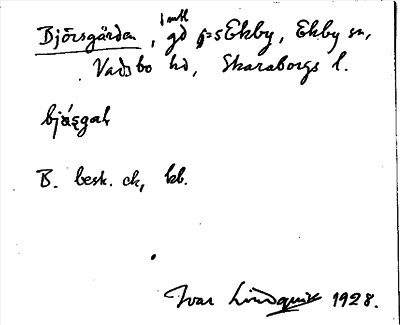 Björsgården, 1 mtl gd på Ekby, Ekby sn,
Vadsbo hd, Skaraborgs l.
bjásgaḷ
B. besk. ck, kb.
Ivar Lindquist 1928.